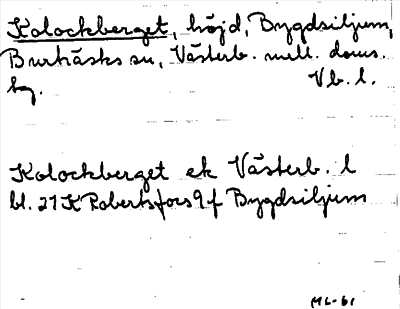 Kolockberget, höjd, Bygdsiljum,
Burträsks sn, Västerb. mell. doms.
hg. Vb. l.
Kolockberget ek Västerb. l
bl. 21 K Robertsfors 9 f Bygdsiljum
ML-61